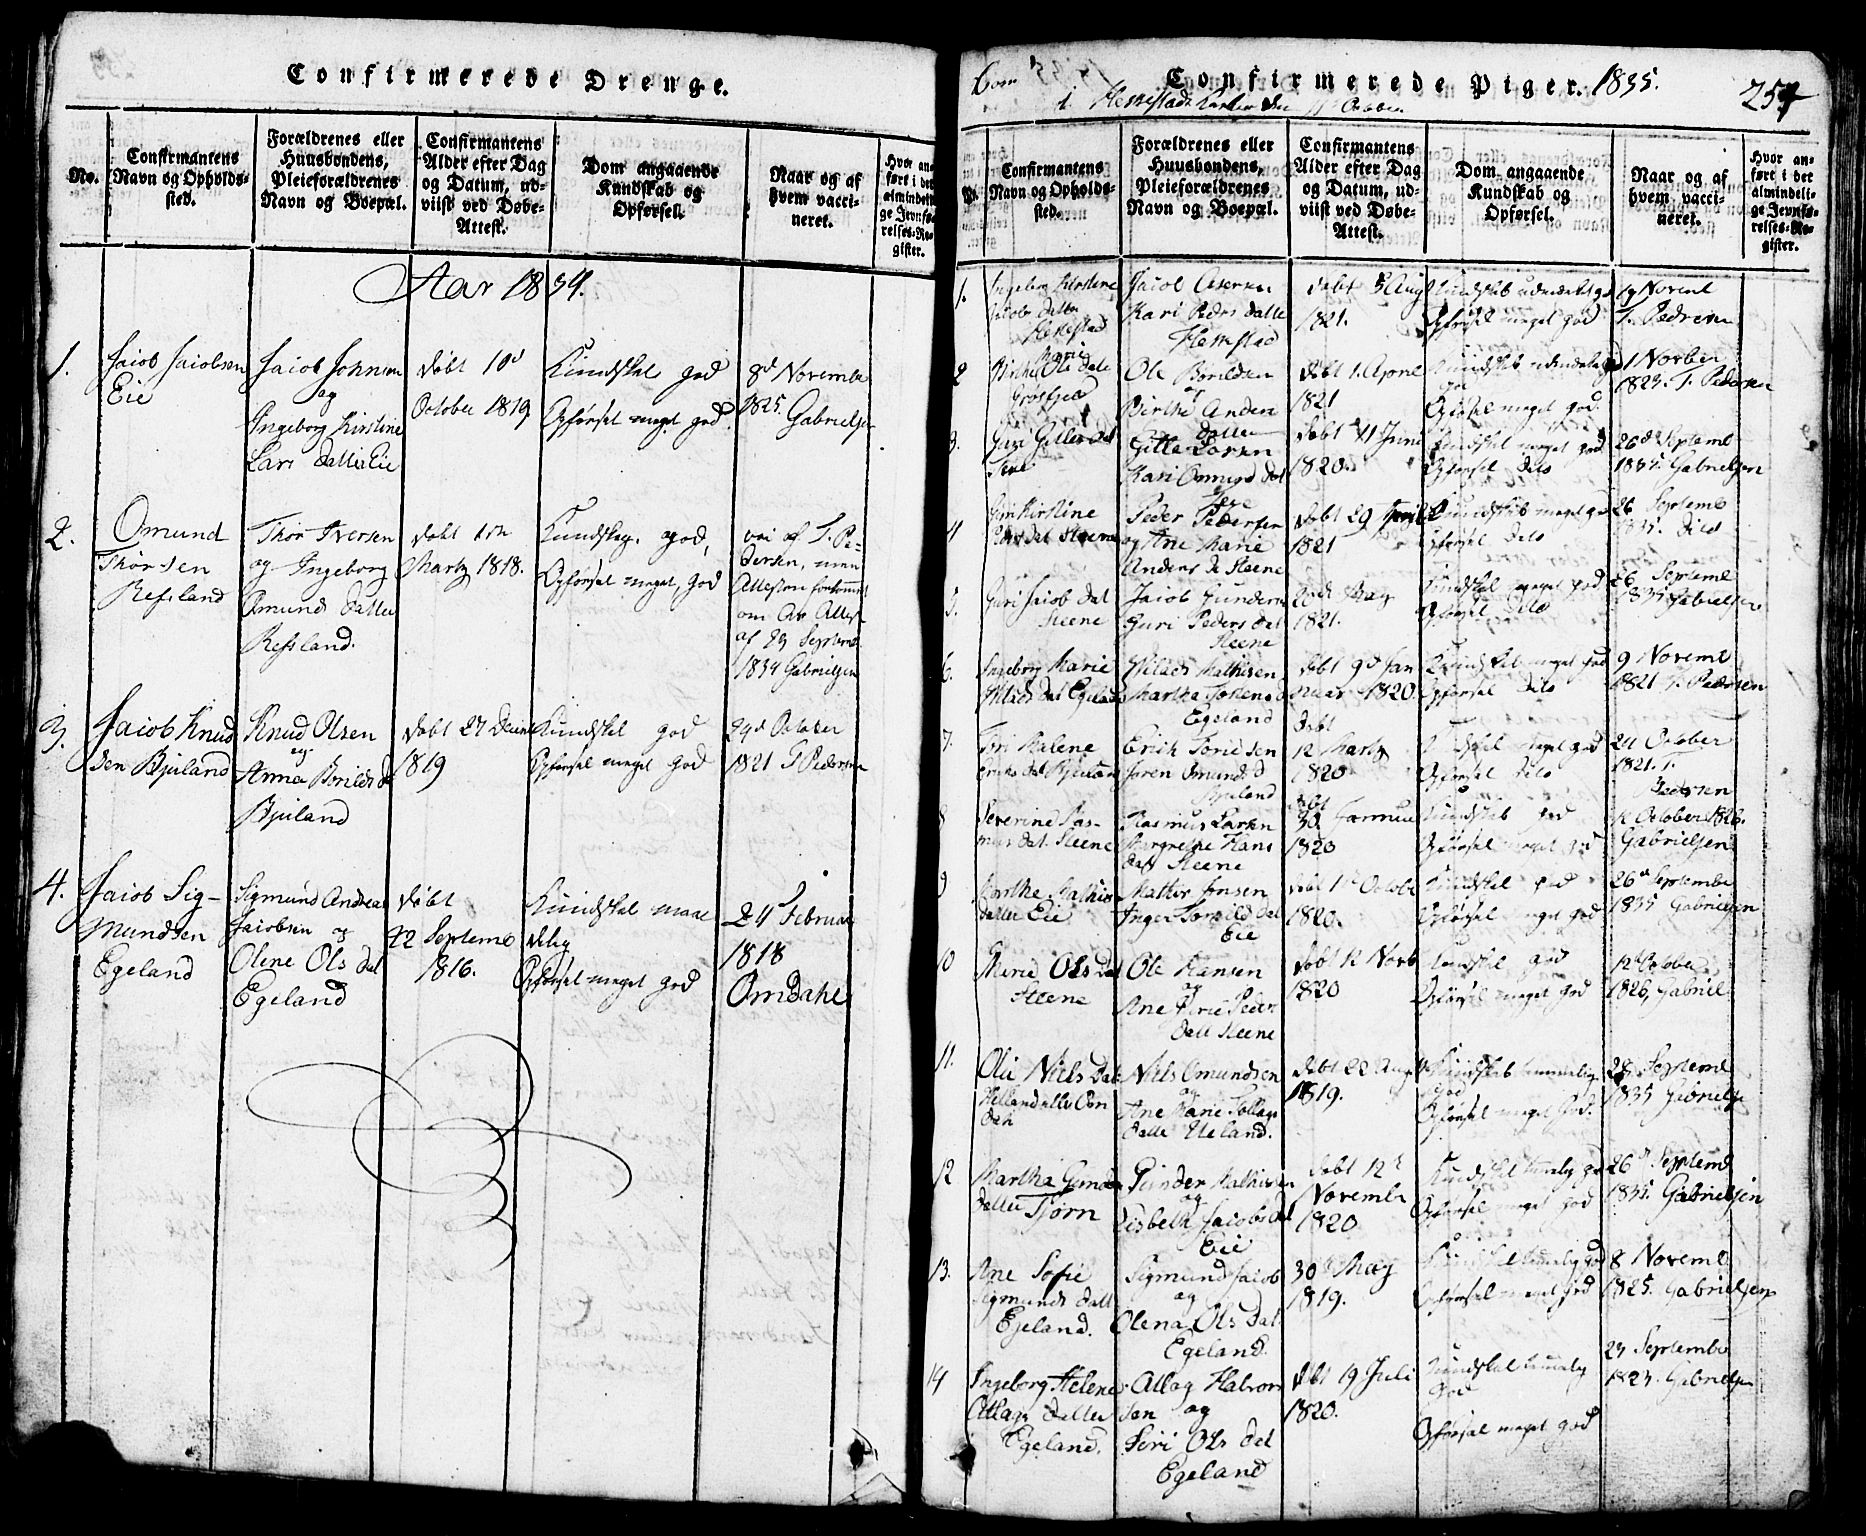 Confirmerede Drenge.
No.
Confirmantens
Navn og Opholds-
sted.
Forældrenes eller
Huusbondens,
Pleieforældrenes
Navn og Boepæl.
Confirmantens
Alder efter Dag
og Datum, ud-
viist ved Døbe-
Attest.
Dom angaaende
Kundskab og
Opførsel.
Naar og af
hvem vacci-
neret.
Hvor an-
ført i det
almindeli-
ge Jevnfø-
relses-Re-
gister.
Aar 1834.
1.
Jacob Jacobsen
Eie
Jacob Johnsen
og
Ingeborg Kirstine
Lars datter Eie
døbt 10d
October 1819
Kundskab god
Opførsel meget god.
8d Novembr
1825. Gabrielsen
2.
Omund
Thorsen
Refsland
Thor Iversen
og Ingeborg
Omunds datter
Refsland.
døbt
Martz 1818.
Kundskap god,
Opførsel meget god
af T. Pe-
dersen, men
Attesten forkommet
af 23 Septemb
1834 Gabrielsen
3.
Jacob Knud
sen Bjuland
Knud Olsen
og
Anna
Bjuland
døbt 27 Decemb
1819
Kundskab god
Opførsel meget god
24d October
1821 T Pedersen
4.
Jacob Sig-
mundsen
Egeland
Sigmund Andreas
Jacobsen og
Olene Ols dat
Egeland
døbt
22 Septemb
1816.
Kundskab maae
delig
Opførsel meget god
24 Februar
1818
Omdahl
Confirmerede Piger. 1835.
257
i Heskestads Kirke den 11 October
No.
Confirmantens
Navn og Opholds-
sted.
Forældrenes eller
Huusbondens,
Pleieforældrenes
Navn og Boepæl.
Confirmantens
Alder efter Dag
og Datum, ud-
viist ved Døbe-
Attest.
Dom angaaende
Kundskab og
Opførsel.
Naar og af
hvem vacci-
neret.
Hvor an-
ført i det
almindeli-
ge Jevnfø-
relses-Re-
gister.
1.
Ingeborg Kirstine
Jacobs datter
Heskestad
Jacob Asersen
Kari Peders datter
Heskestad
døbt 5 Aug
1821.
Opførsel meget god
19 Novemb
T. Pedersen
2
Birthe Marie Ols datter
Ole
og
Birthe Anders
datter
døbt 1. April
1821
Opførsel meget god.
1 Novber
1823. T. Pedersen
3.
Guri Gitles dat
Gitle Larsen
Kari Omund dat
døbt 11 Juni
1820.
Kundskab meget god
Opførsel dito
26d Septemb
1835. Gabrielsen
4
Kirstine
Peders dat Steene
Peder Pedersen
og Ane Marie
Anders d Steene
døbt 29 April
1821
Kundskab meget god
Opførsel dito
26 Septemb
1835. Dito
5.
Guri Jacob dat
Steene
Jacob Gunders
Guri Peders dat
Steene
May
1821.
Kundskab meget god
Opførsel dito
26 Septemb
1835 Gabrielsen
6.
Ingeborg Marie
Nilads dat Egeland
Nilads Mathisen
Martha
Egeland
døbt 9d Jan
nuar 1820
Kundskab meget god
Opførsel dito
9 Novemb
1821 T. Pedersen
7.
Tori Malene
Eriks dat Bjuland
Erich
Omund d
Bjuland
døbt
12 Martz
1820
Kundskab meget god
Opførsel dito
24 October
1821. T.
Pedersen
8
Severine Ras-
mus dat. Steene
Rasmus Larsen
Margrethe Hans
dat Steene
døbt
30. Januar
1820
Kundskab god
Opførsel meget god
12 October 1826.
Gabrielsen
9
Marthe Mathis
datter Eie
Mathis Jensen
Inger
Eie
døbt 1d Octobr
1820.
Kundskab god
Opførsel meget god
26d Septembr
1835 Gabrielsen
10
Ols dat
Steene
Ole Hansen
og
Ane Marie Peder
datt Steene
døbt 12 Novb
1820
Kundskab god
Opførsel meget god
12 October
1826, Gabriel
11.
Oli Nils dat
Nils Omundsen
og
Ane Marie Tollags
datter Ueland.
døbt 22 Aug
1819.
Kundskab temmelig
god
Opførsel meget god.
28 Septemb
1835 Gabrielsen
12
Martha Gunders
datter Tjørn
Gunder Mathisen
og
Lisbeth Jacobs dat
Eie
døbt 12d
Novembr
1820
Kundskab temmelig god
Opførsel meget god
26d Septemb
1835. Gabrielsen
13.
Ane Sofie
Sigmunds datt
Egeland.
Sigmund Jacob
og
Olena Ols dat
Egeland.
30d May
1819.
Kundskab temmelig god
Opførsel meget god
8 Novemb
1825. Gabrielsen
14
Ingeborg Helene
Atlags datter
Egeland.
Atlag Halvor
sen og
Seri Ols dat
Egeland
døbt 19 Juli
1820.
Kundskab temmelig
god
Opførsel meget god
23 Septembr
1823. Gabrielsen